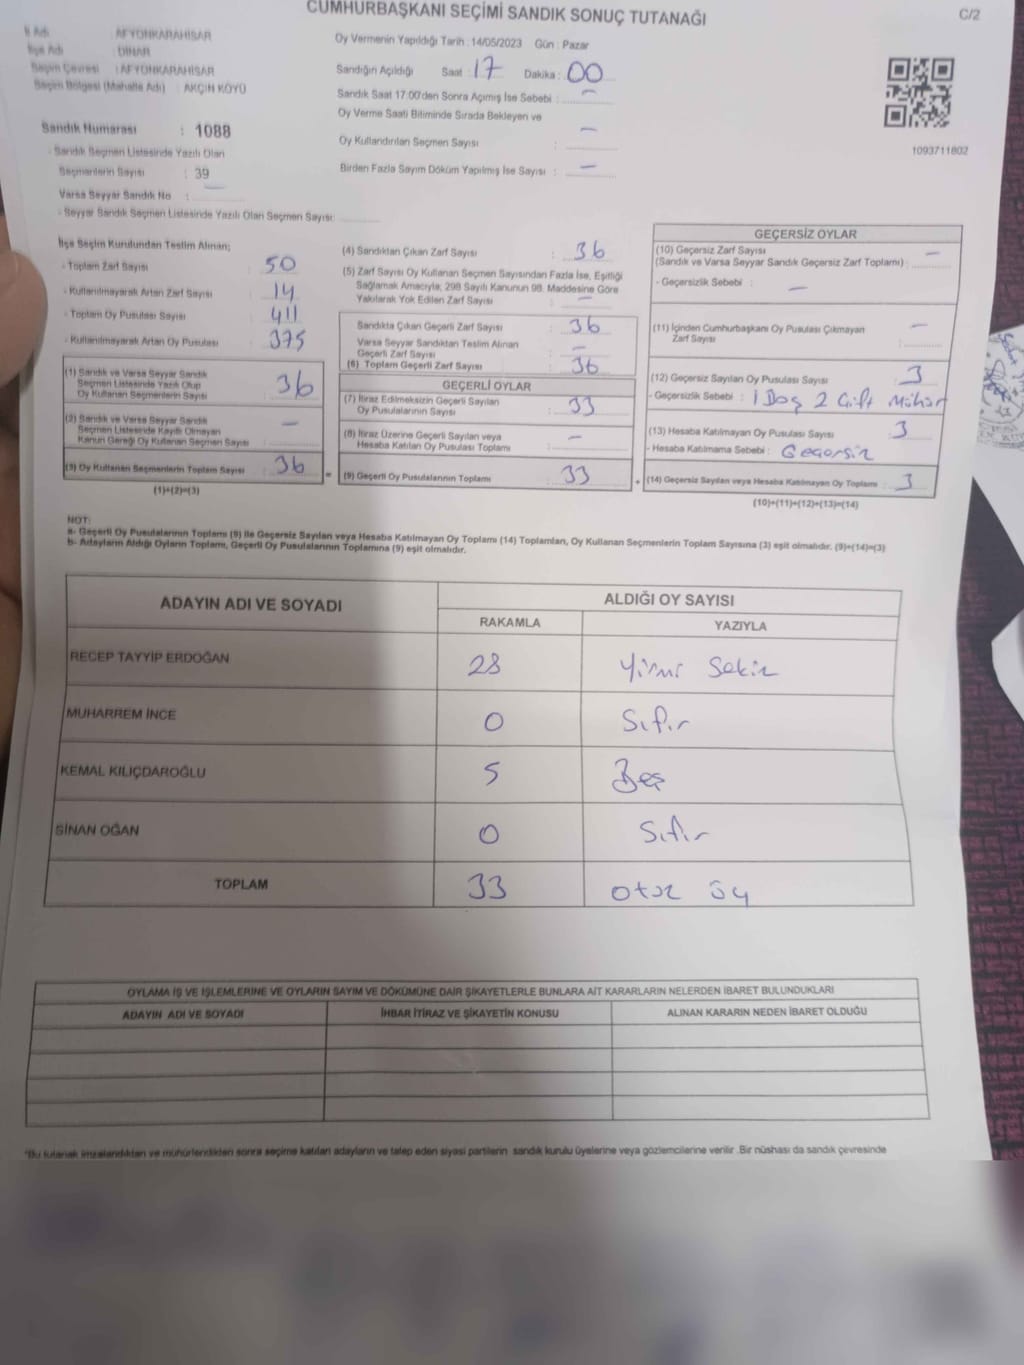 CUMHURBAŞKANI SEÇİMİ SANDIK SONUÇ TUTANAĞI
C/2
İl Adı : AFYONKARAHİSAR
İlçe Adı : DİNAR
Seçim Çevresi : AFYONKARAHİSAR
Seçim Bölgesi (Mahalle Adı) : AKÇİN KÖYÜ
Sandık Numarası : 1088
- Sandık Seçmen Listesinde Yazılı Olan
Seçmenlerin Sayısı : 39
Varsa Seyyar Sandık No : —
- Seyyar Sandık Seçmen Listesinde Yazılı Olan Seçmen Sayısı:
Oy Vermenin Yapıldığı Tarih : 14/05/2023 Gün : Pazar
Sandığın Açıldığı Saat : 17 Dakika : 00
Sandık Saat 17:00'den Sonra Açımış İse Sebebi : —
Oy Verme Saati Bitiminde Sırada Bekleyen ve
Oy Kullandırılan Seçmen Sayısı : —
Birden Fazla Sayım Döküm Yapılmış İse Sayısı : —
1093711802
İlçe Seçim Kurulundan Teslim Alınan;
- Toplam Zarf Sayısı : 50
- Kullanılmayarak Artan Zarf Sayısı : 14
- Toplam Oy Pusulası Sayısı : 411
- Kullanılmayarak Artan Oy Pusulası : 375
(1) Sandık ve Varsa Seyyar Sandık
Seçmen Listesinde Yazılı Olup
Oy Kullanan Seçmenlerin Sayısı : 36
(2) Sandık ve Varsa Seyyar Sandık
Seçmen Listesinde Kayıtlı Olmayan
Kanun Gereği Oy Kullanan Seçmen Sayısı : —
(3) Oy Kullanan Seçmenlerin Toplam Sayısı : 36 =
(1)+(2)=(3)
(4) Sandıktan Çıkan Zarf Sayısı : 36
(5) Zarf Sayısı Oy Kullanan Seçmen Sayısından Fazla İse, Eşitliği
Sağlamak Amacıyla; 298 Sayılı Kanunun 98. Maddesine Göre
Yakılarak Yok Edilen Zarf Sayısı : —
Sandıkta Çıkan Geçerli Zarf Sayısı : 36
Varsa Seyyar Sandıktan Teslim Alınan
Geçerli Zarf Sayısı : —
(6) Toplam Geçerli Zarf Sayısı : 36
GEÇERLİ OYLAR
(7) İtiraz Edilmeksizin Geçerli Sayılan
Oy Pusulalarının Sayısı : 33
(8) İtiraz Üzerine Geçerli Sayılan veya
Hesaba Katılan Oy Pusulaları Toplamı : —
(9) Geçerli Oy Pusulalarının Toplamı : 33 +
GEÇERSİZ OYLAR
(10) Geçersiz Zarf Sayısı —
(Sandık ve Varsa Seyyar Sandık Geçersiz Zarf Toplamı) :
- Geçersizlik Sebebi : —
(11) İçinden Cumhurbaşkanı Oy Pusulası Çıkmayan
Zarf Sayısı : —
(12) Geçersiz Sayılan Oy Pusulası Sayısı : 3
- Geçersizlik Sebebi : 1 Boş 2 Çift Mühür
(13) Hesaba Katılmayan Oy Pusulası Sayısı : 3
- Hesaba Katılmama Sebebi : Geçersiz
(14) Geçersiz Sayılan veya Hesaba Katılmayan Oy Toplamı : 3
(10)+(11)+(12)+(13)=(14)
NOT:
a- Geçerli Oy Pusulalarının Toplamı (9) ile Geçersiz Sayılan veya Hesaba Katılmayan Oy Toplamı (14) Toplamları, Oy Kullanan Seçmenlerin Toplam Sayısına (3) eşit olmalıdır. (9)+(14)=(3)
b- Adayların Aldığı Oyların Toplamı, Geçerli Oy Pusulalarının Toplamına (9) eşit olmalıdır.
ADAYIN ADI VE SOYADI
ALDIĞI OY SAYISI
RAKAMLA YAZIYLA
RECEP TAYYİP ERDOĞAN 28 Yirmi Sekiz
MUHARREM İNCE 0 Sıfır
KEMAL KILIÇDAROĞLU 5 Beş
SİNAN OĞAN 0 Sıfır
TOPLAM 33 Otuz üç
OYLAMA İŞ VE İŞLEMLERİNE VE OYLARIN SAYIM VE DÖKÜMÜNE DAİR ŞİKAYETLERLE BUNLARA AİT KARARLARIN NELERDEN İBARET BULUNDUKLARI
ADAYIN ADI VE SOYADI İHBAR İTİRAZ VE ŞİKAYETİN KONUSU ALINAN KARARIN NEDEN İBARET OLDUĞU
*Bu tutanak imzalandıktan ve mühürlendikten sonra seçime katılan adayların ve talep eden siyasi partilerin sandık kurulu üyelerine veya gözlemcilerine verilir .Bir nüshası da sandık çevresinde